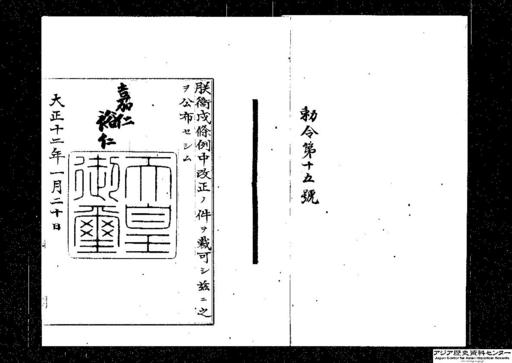 勅令第十五號
朕衞戍條例中改正ノ件ヲ裁可シ茲ニ之
ヲ公布セシム
嘉仁
裕仁
天皇
御璽
大正十二年一月二十日
アジア歴史資料センター
Japan Center for Asian Historical Records